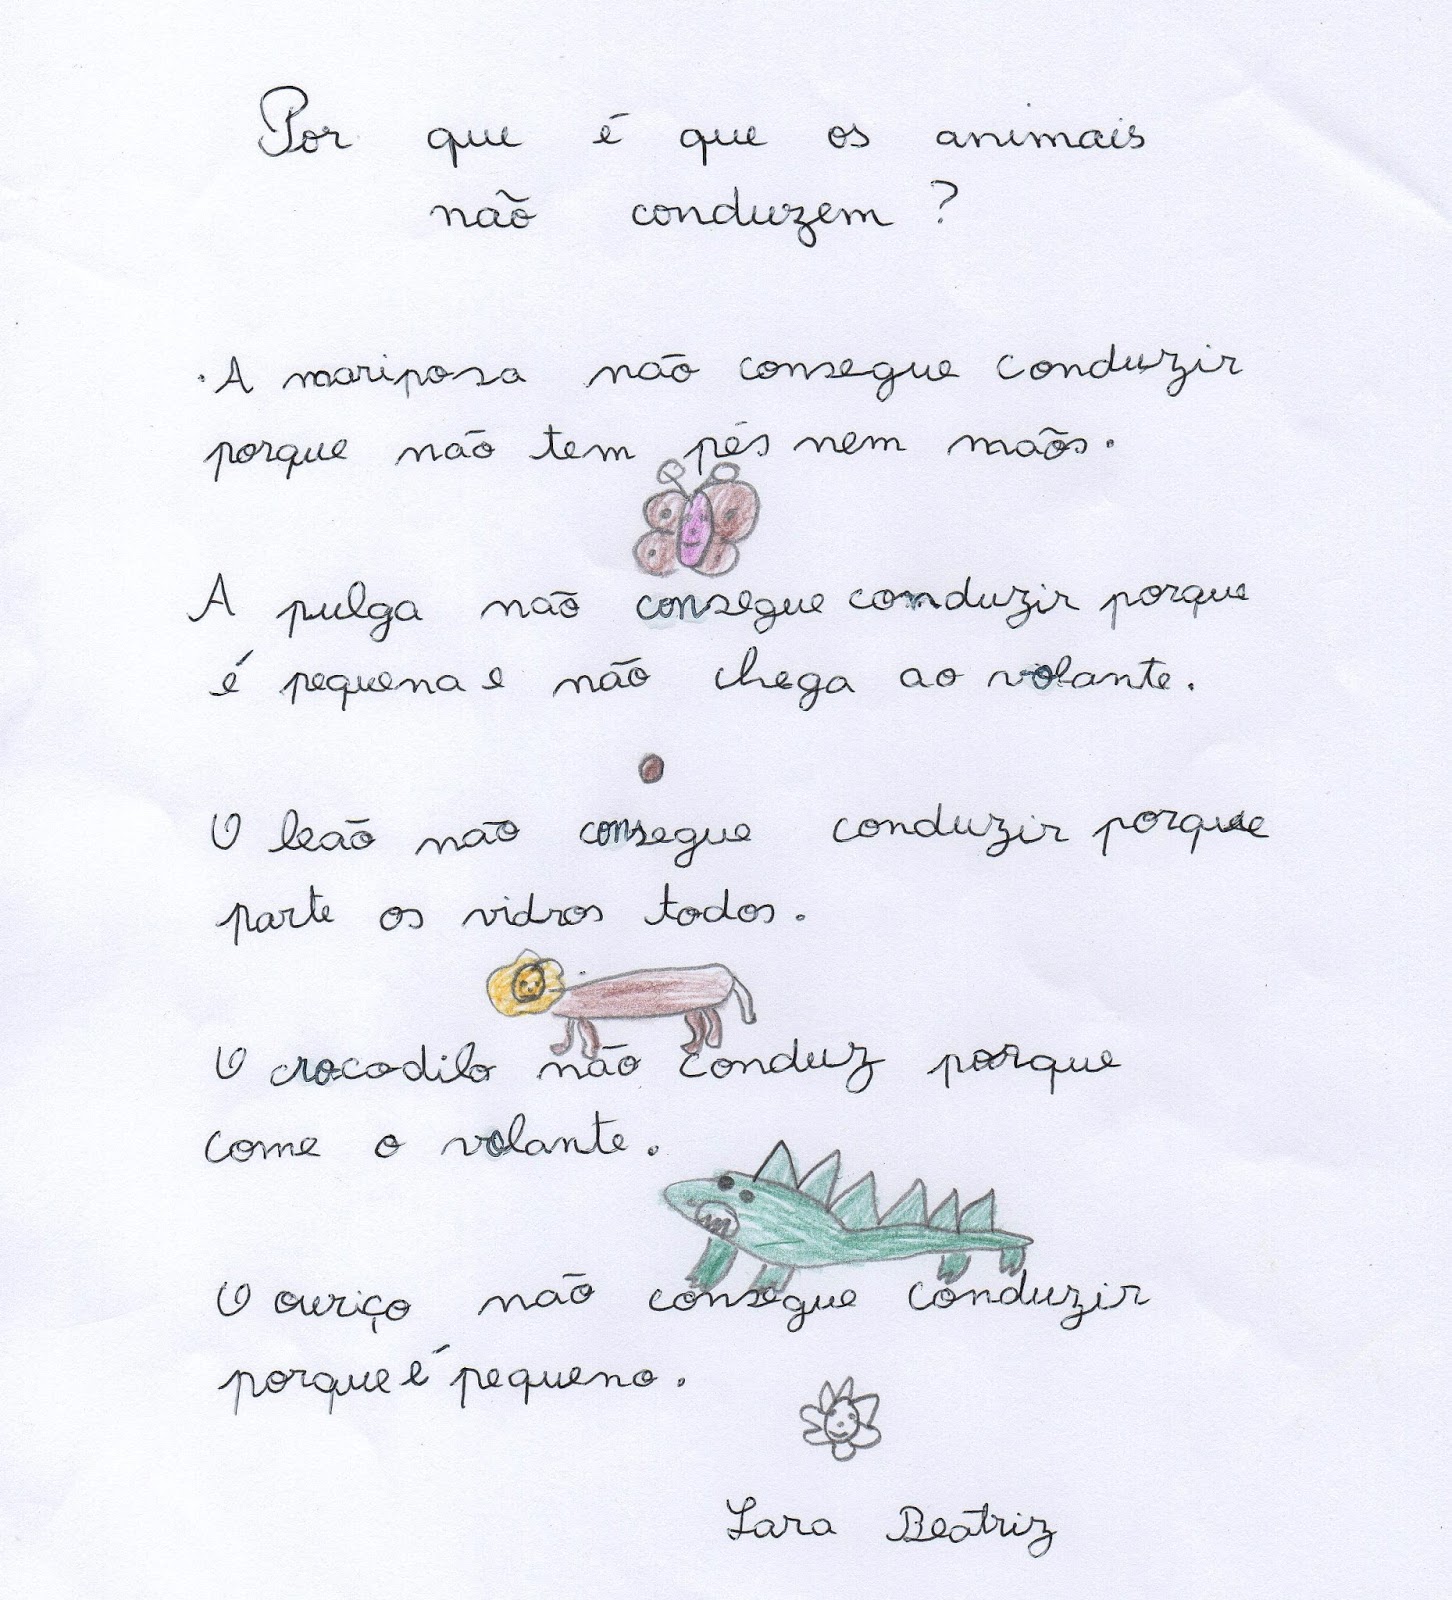 Por que é que os animais
não conduzem?
. A mariposa não consegue conduzir
porque não tem pés nem mãos.
A pulga não consegue conduzir porque
é pequena e não chega ao volante.
O leão não consegue conduzir porque
parte os vidros todos.
O crocodilo não conduz porque
come o volante.
O ouriço não consegue conduzir
porque é pequeno.
Lara Beatriz